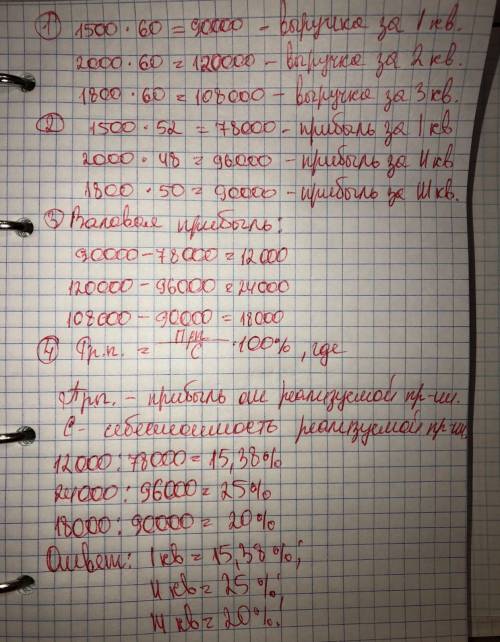 ① 1500 · 60 = 90000 - выручка за 1 кв.
2000 · 60 = 120000 - выручка за 2 кв.
1800 · 60 = 108000 - выручка за 3 кв.
② 1500 · 52 = 78000 - прибыль за I кв
2000 · 48 = 96000 - прибыль за II кв
1800 · 50 = 90000 - прибыль за III кв.
③ Валовая прибыль:
90000 - 78000 = 12000
120000 - 96000 = 24000
108000 - 90000 = 18000
④ Фр.п. = Прп/С · 100%, где
Прп. - прибыль от реализуемой пр-ии.
С - себестоимость реализуемой пр-ии.
12000 : 78000 = 15,38%
24000 : 96000 = 25%
18000 : 90000 = 20%
Ответ: I кв = 15,38%;
II кв = 25%;
III кв = 20%.